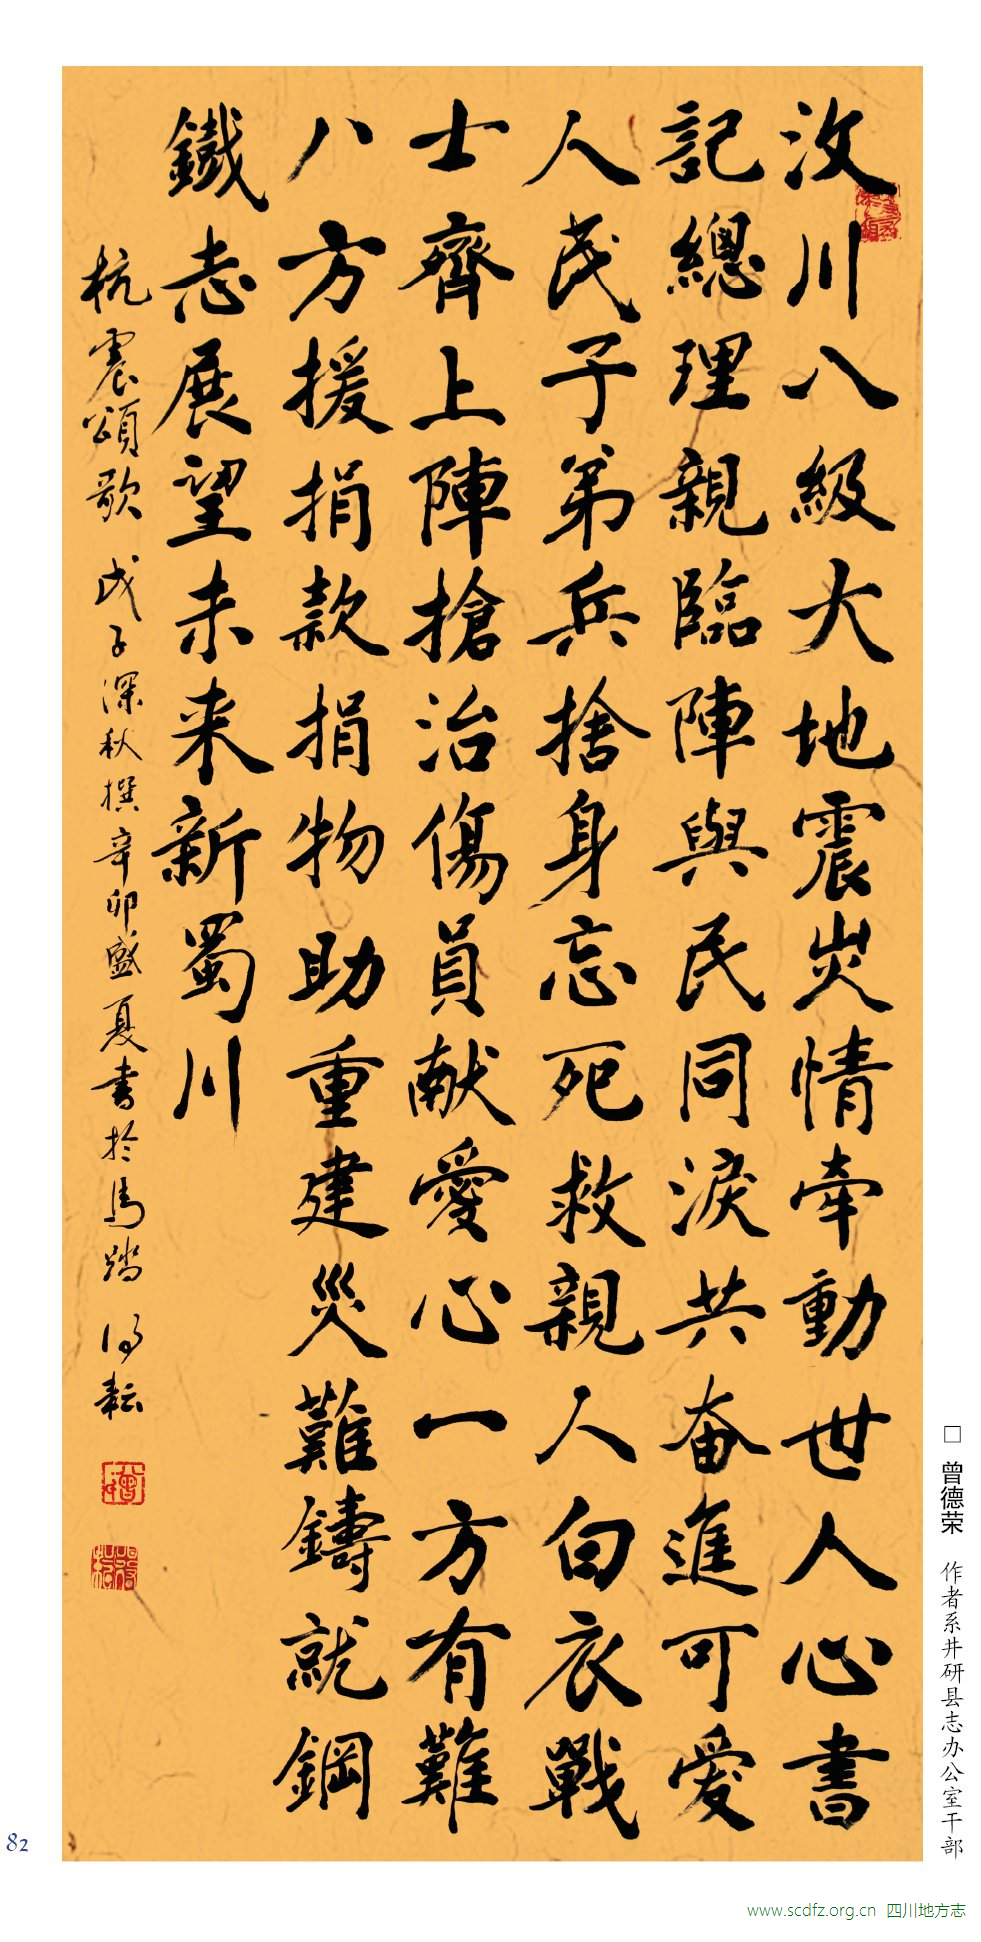 汶川八級大地震災情牽動世人心書
記總理親臨陣與民同淚共奋進可爱
人民子弟兵捨身忘死救親人白衣戰
士齊上陣搶治傷員献愛心一方有難
八方援捐款捐物助重建災難鑄就鋼
鐵志展望未来新蜀川
杭震頌歌 戊子深秋撰辛卯盛夏書於馬踏 耘
□ 曾德荣 作者系井研县志办公室干部
82
www.scdfz.org.cn 四川地方志